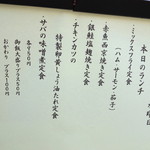 本日のランチ
・ミックスフライ定食
（ハム・サーモン・茄子）
・赤魚西京焼き定食
・銀鮭塩麹焼き定食
・チキンカツの
特製卵黄しょう油だれ定食
・サバの味噌煮定食
各750円
御飯大盛りプラス150円
おかわり プラス150円